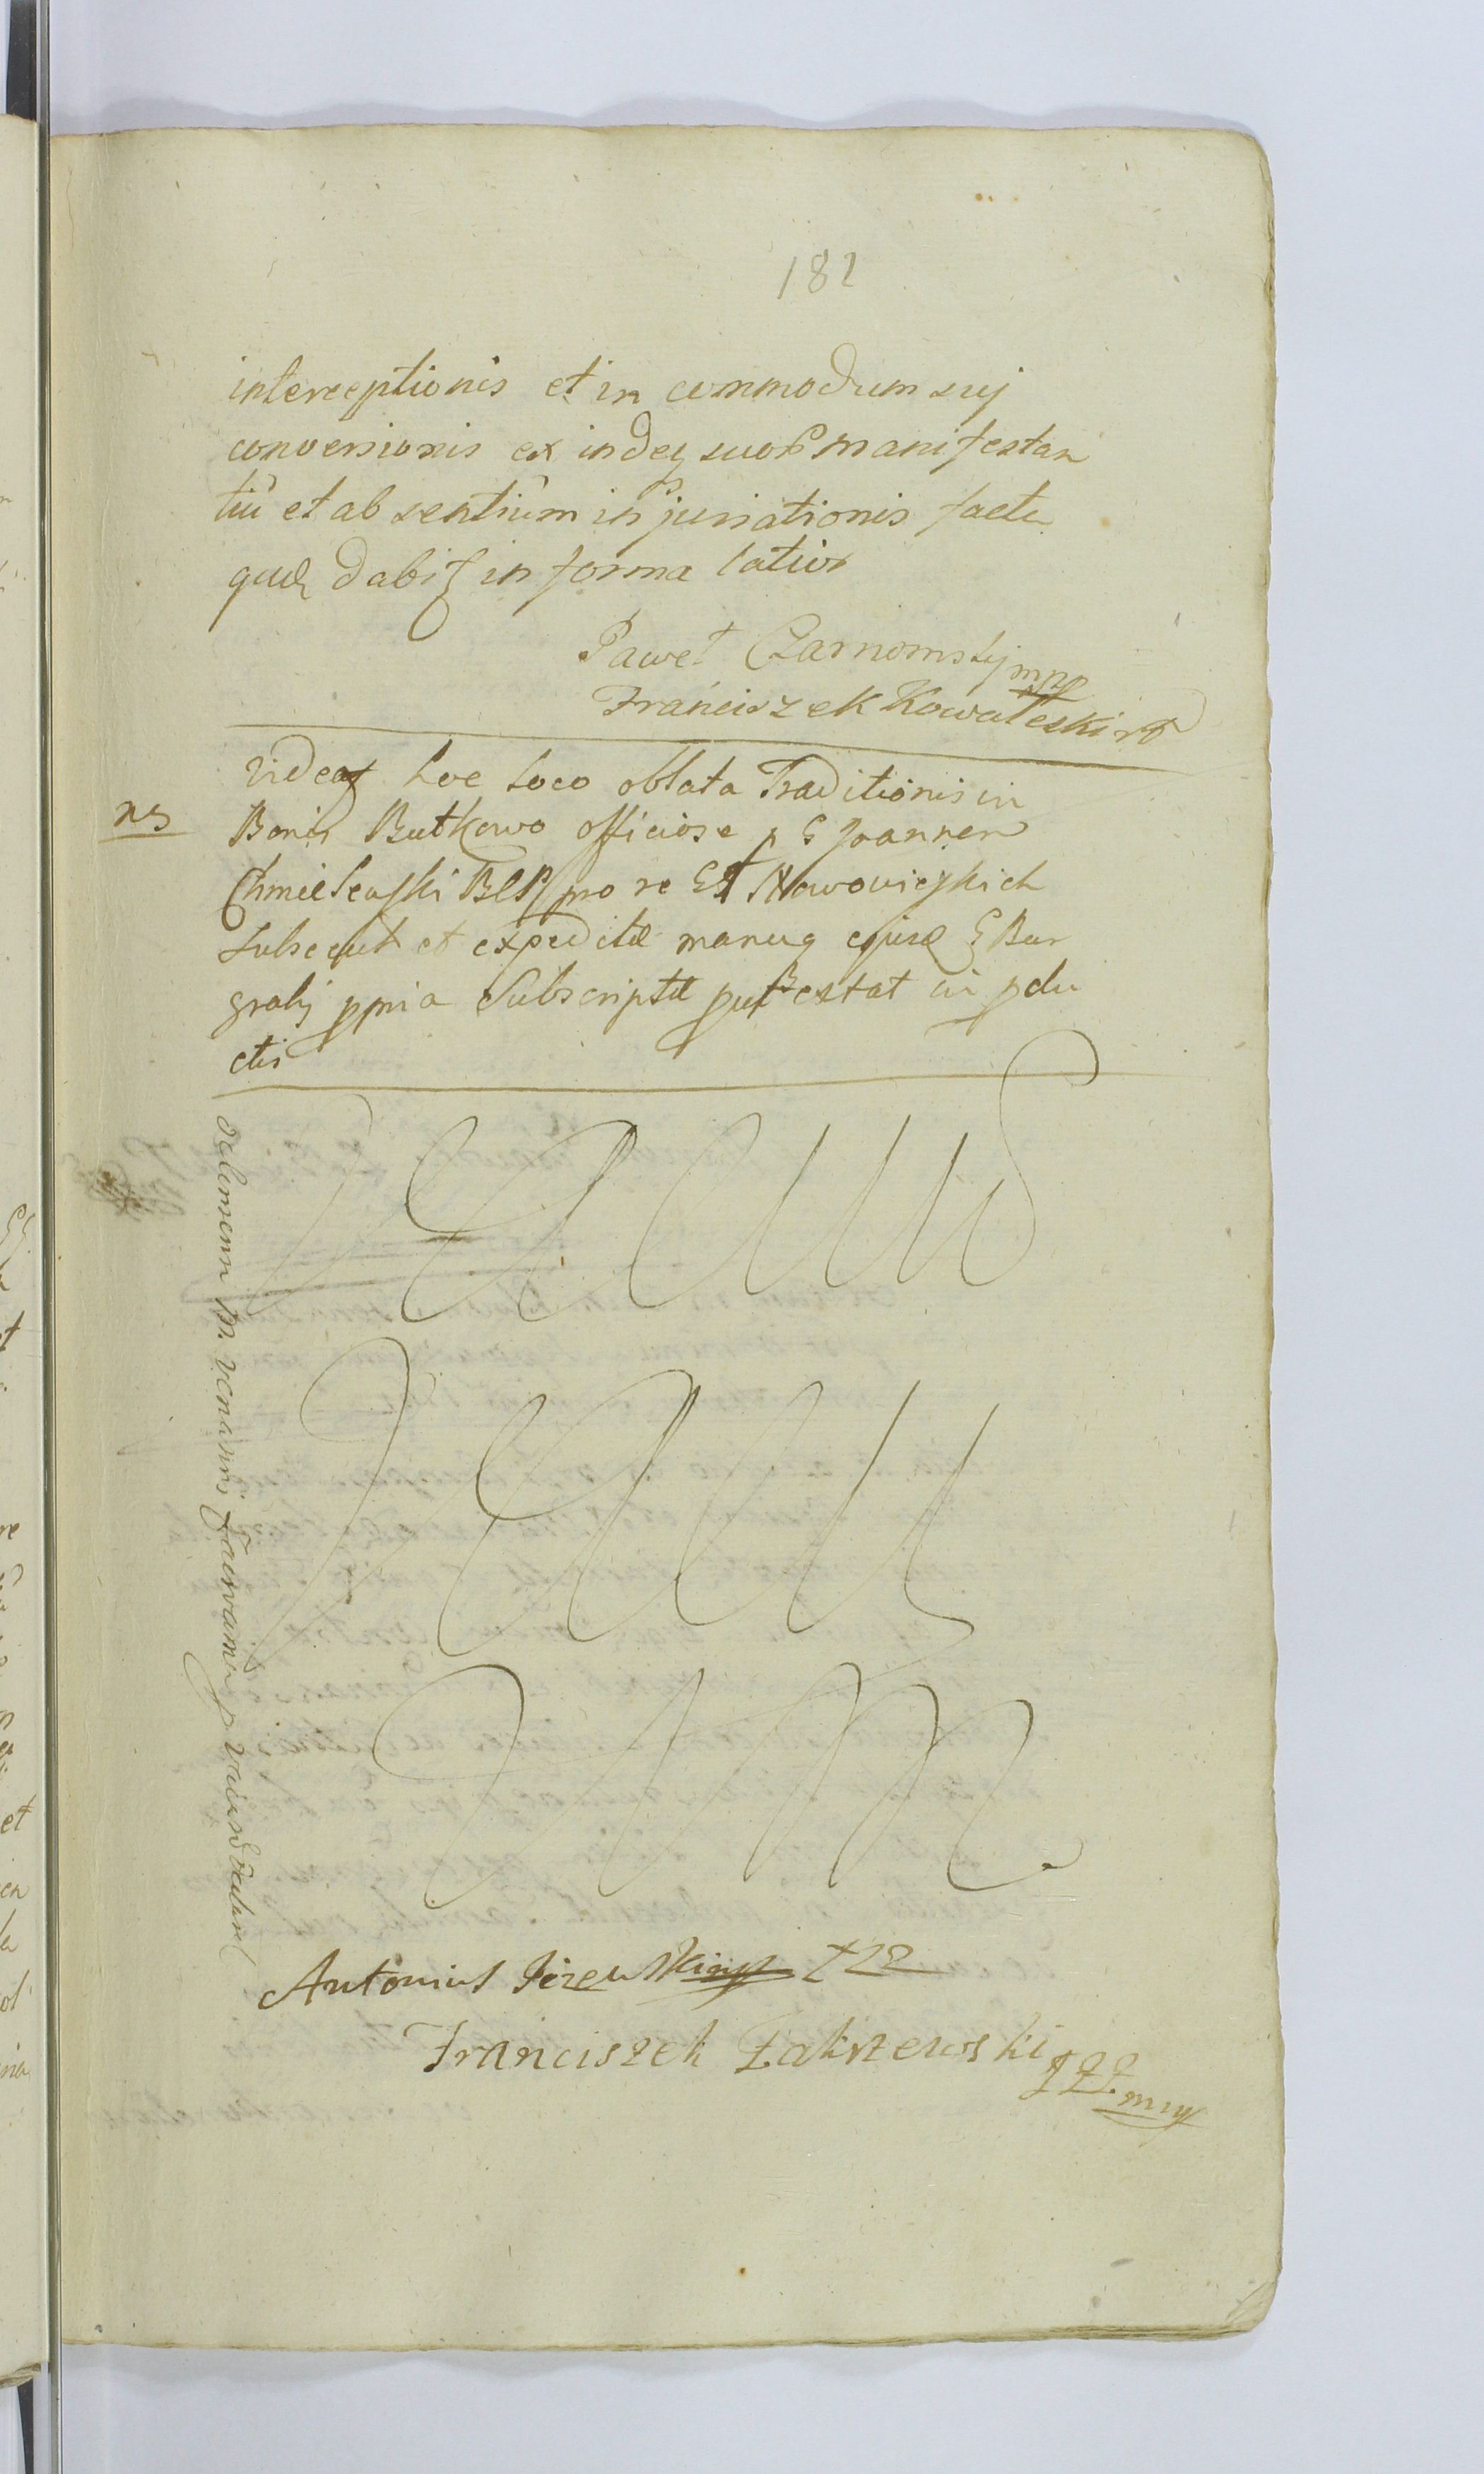 182
interceptionis et in commodum suj
conversionis ex indeq suor manifestan
tiu et absentium injuriationis facta
quæ dabit in forma latior
Paweł Czarnomskj mp
Franciszek Kowaleski
Videat hoc loco oblata Traditionis in
ns
Bonis Butkowo officiose p G Joannem
Chmielewski BCP pro re GG Nowowieyskich
Subsecut et expeditæ manuq ejusd G Bur
grabj ppria Subscriptæ put extat in pdu
ctis
Antonius mp
Franciszek Zakrzewski mp